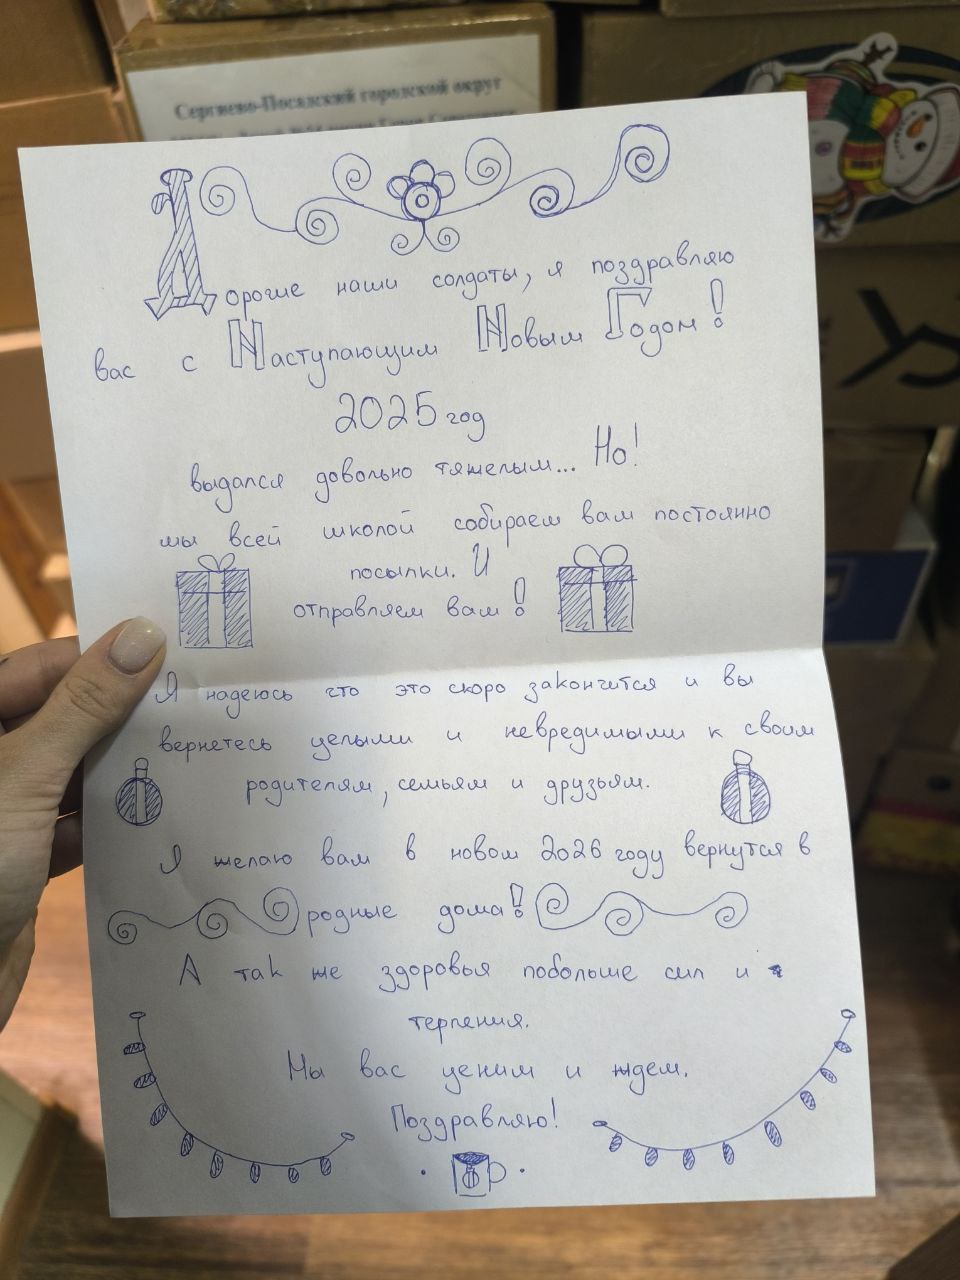 Сергиево-Посадский городской округ
Дорогие наши солдаты, я поздравляю
вас с Наступающим Новым Годом!
2025 год
выдался довольно тяжелым... Но!
мы всей школой собираем вам постоянно
посылки. И
отправляем вам!
Я надеюсь что это скоро закончится и вы
вернетесь целыми и невредимыми к своим
родителям, семьям и друзьям.
Я желаю вам в новом 2026 году вернутся в
родные дома!
А так же здоровья побольше сил и
терпения.
Мы вас ценим и ждем.
Поздравляю!